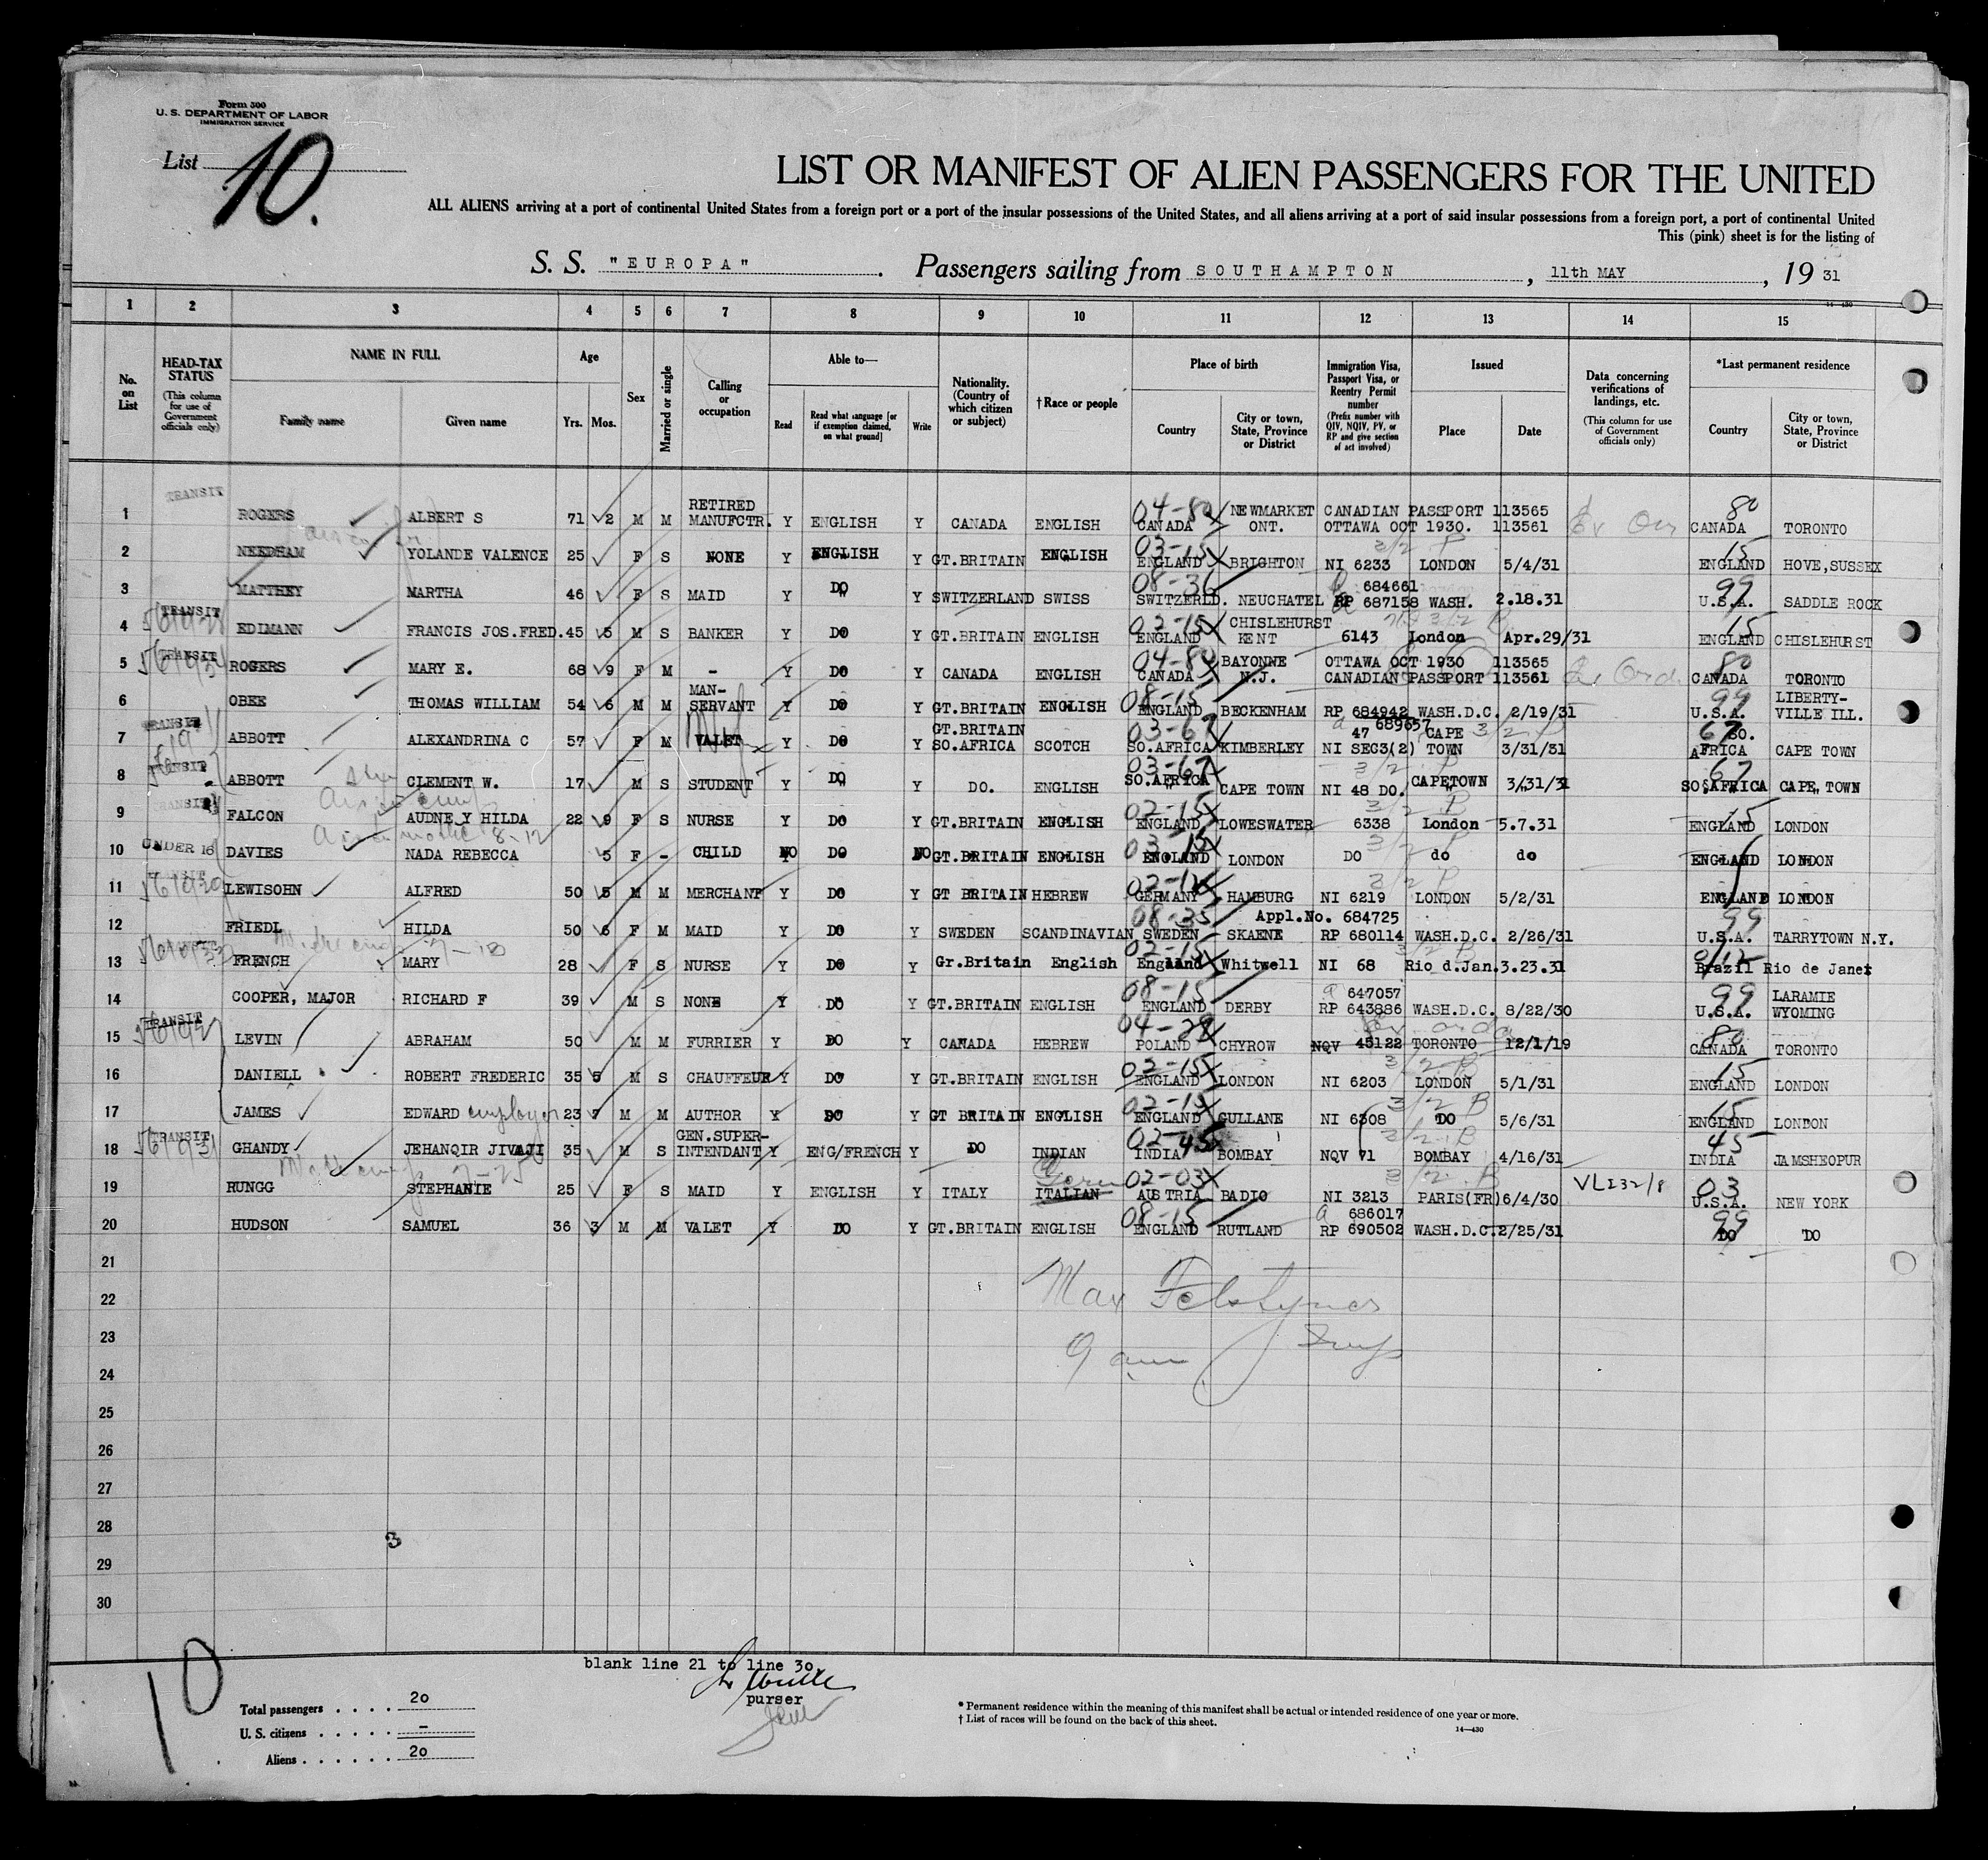 Form 500
U. S. DEPARTMENT OF LABOR
IMMIGRATION SERVICE
List 10.
LIST OR MANIFEST OF ALIEN PASSENGERS FOR THE UNITED
ALL ALIENS arriving at a port of continental United States from a foreign port or a port of the insular possessions of the United States, and all aliens arriving at a port of said insular possessions from a foreign port, a port of continental United
This (pink) sheet is for the listing of
S. S. "EUROPA". Passengers sailing from SOUTHAMPTON, 11th MAY, 19 31
1 2 3 4 5 6 7 8 9 10 11 12 13 14 15
No. on List
HEAD-TAX STATUS (This column for use of Government officials only)
NAME IN FULL Family name Given name
Age Yrs. Mos.
Sex
Married or single
Calling or occupation
Able to— Read Read what language [or if exemption claimed, on what ground] Write
Nationality. (Country of which citizen or subject)
†Race or people
Place of birth Country City or town, State, Province or District
Immigration Visa, Passport Visa, or Reentry Permit number (Prefix number with QIV, NQIV, PV, or RP and give section of act involved)
Issued Place Date
Data concerning verifications of landings, etc. (This column for use of Government officials only)
*Last permanent residence Country City or town, State, Province or District
1 TRANSIT ROGERS ALBERT S 71 2 M M RETIRED MANUFCTR. Y ENGLISH Y CANADA ENGLISH 04-80 CANADA NEWMARKET ONT. CANADIAN PASSPORT 113565 OTTAWA OCT 1930. 113561 80 CANADA TORONTO
2 NEEDHAM YOLANDE VALENCE 25 F S NONE Y ENGLISH Y GT.BRITAIN ENGLISH 03-15 ENGLAND BRIGHTON 3/2 B NI 6233 LONDON 5/4/31 15 ENGLAND HOVE,SUSSEX
3 MATTHEY MARTHA 46 F S MAID Y DO Y SWITZERLAND SWISS 08-36 SWITZERLD. NEUCHATEL 684661 RP 687158 WASH. 2.18.31 99 U.S.A. SADDLE ROCK
4 TRANSIT EDLMANN FRANCIS JOS.FRED. 45 5 M S BANKER Y DO Y GT.BRITAIN ENGLISH 02-15 ENGLAND CHISLEHURST KENT 3/2 B 6143 London Apr.29/31 15 ENGLAND CHISLEHURST
5 TRANSIT ROGERS MARY E. 68 9 F M - Y DO Y CANADA ENGLISH 04-80 CANADA BAYONNE N.J. OTTAWA OCT 1930 113565 CANADIAN PASSPORT 113561 80 CANADA TORONTO
6 OBEE THOMAS WILLIAM 54 6 M M MAN-SERVANT Y DO Y GT.BRITAIN ENGLISH 08-15 ENGLAND BECKENHAM RP 684942 WASH.D.C. 2/19/31 689657 99 U.S.A. LIBERTY-VILLE ILL.
7 TRANSIT ABBOTT ALEXANDRINA C 57 F M VALET Y DO Y GT.BRITAIN SO.AFRICA SCOTCH 03-67 SO.AFRICA KIMBERLEY 47 NI SEC3(2) CAPE TOWN 3/2 B 3/31/31 67 SO. AFRICA CAPE TOWN
8 TRANSIT ABBOTT CLEMENT W. 17 M S STUDENT Y DO Y DO. ENGLISH 03-67 SO.AFRICA CAPE TOWN 3/2 B NI 48 DO. CAPETOWN 3/31/31 67 SO.AFRICA CAPE TOWN
9 TRANSIT FALCON AUDNEY HILDA 22 9 F S NURSE Y DO Y GT.BRITAIN ENGLISH 02-15 ENGLAND LOWESWATER 3/2 B 6338 London 5.7.31 15 ENGLAND LONDON
10 UNDER 16 DAVIES NADA REBECCA 5 F - CHILD NO DO NO GT.BRITAIN ENGLISH 03-15 ENGLAND LONDON DO do do ENGLAND LONDON
11 TRANSIT LEWISOHN ALFRED 50 5 M M MERCHANT Y DO Y GT BRITAIN HEBREW 02-12 GERMANY HAMBURG 3/2 B NI 6219 LONDON 5/2/31 ENGLAND LONDON
12 FRIEDL HILDA 50 6 F M MAID Y DO Y SWEDEN SCANDINAVIAN 08-35 SWEDEN SKAENE Appl.No. 684725 RP 680114 WASH.D.C. 2/26/31 99 U.S.A. TARRYTOWN N.Y.
13 FRENCH MARY 28 F S NURSE Y DO Y Gr.Britain English 02-15 England Whitwell 3/2 B NI 68 Rio d.Jan. 3.23.31 Brazil Rio de Janei
14 COOPER, MAJOR RICHARD F 39 M S NONE Y DO Y GT.BRITAIN ENGLISH 08-15 ENGLAND DERBY 647057 RP 643886 WASH.D.C. 8/22/30 99 U.S.A. LARAMIE WYOMING
15 TRANSIT LEVIN ABRAHAM 50 M M FURRIER Y DO Y CANADA HEBREW 04-29 POLAND CHYROW NQV 45122 TORONTO 12/1/19 80 CANADA TORONTO
16 DANIELL ROBERT FREDERIC 35 5 M S CHAUFFEUR Y DO Y GT.BRITAIN ENGLISH 02-15 ENGLAND LONDON 3/2 B NI 6203 LONDON 5/1/31 15 ENGLAND LONDON
17 JAMES EDWARD employer 23 7 M M AUTHOR Y DO Y GT BRITAIN ENGLISH 02-15 ENGLAND GULLANE 3/2 B NI 6308 DO 5/6/31 15 ENGLAND LONDON
18 TRANSIT GHANDY JEHANQIR JIVAJI 35 M S GEN.SUPER-INTENDANT Y ENG/FRENCH Y DO INDIAN 02-45 INDIA BOMBAY 3/2 B NQV 71 BOMBAY 4/16/31 45 INDIA JAMSHEOPUR
19 RUNGG STEPHANIE 25 F S MAID Y ENGLISH Y ITALY ITALIAN 02-03 AUSTRIA BADIO 3/2 B NI 3213 PARIS(FR) 6/4/30 03 U.S.A. NEW YORK
20 HUDSON SAMUEL 36 3 M M VALET Y DO Y GT.BRITAIN ENGLISH 08-15 ENGLAND RUTLAND 686017 RP 690502 WASH.D.C. 2/25/31 99 DO DO
21
22 Max
23
24 9 am
25
26
27
28
3
29
30
blank line 21 to line 30.
purser
10
Total passengers . . . . 20
U. S. citizens . . . . . -
Aliens . . . . . . 20
* Permanent residence within the meaning of this manifest shall be actual or intended residence of one year or more.
† List of races will be found on the back of this sheet.
14—430